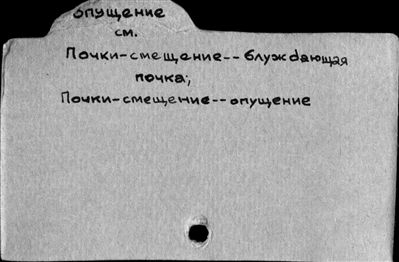 опущение
см.
Почки-смещение--блуждающая
почка;
Почки-смещение--опущение